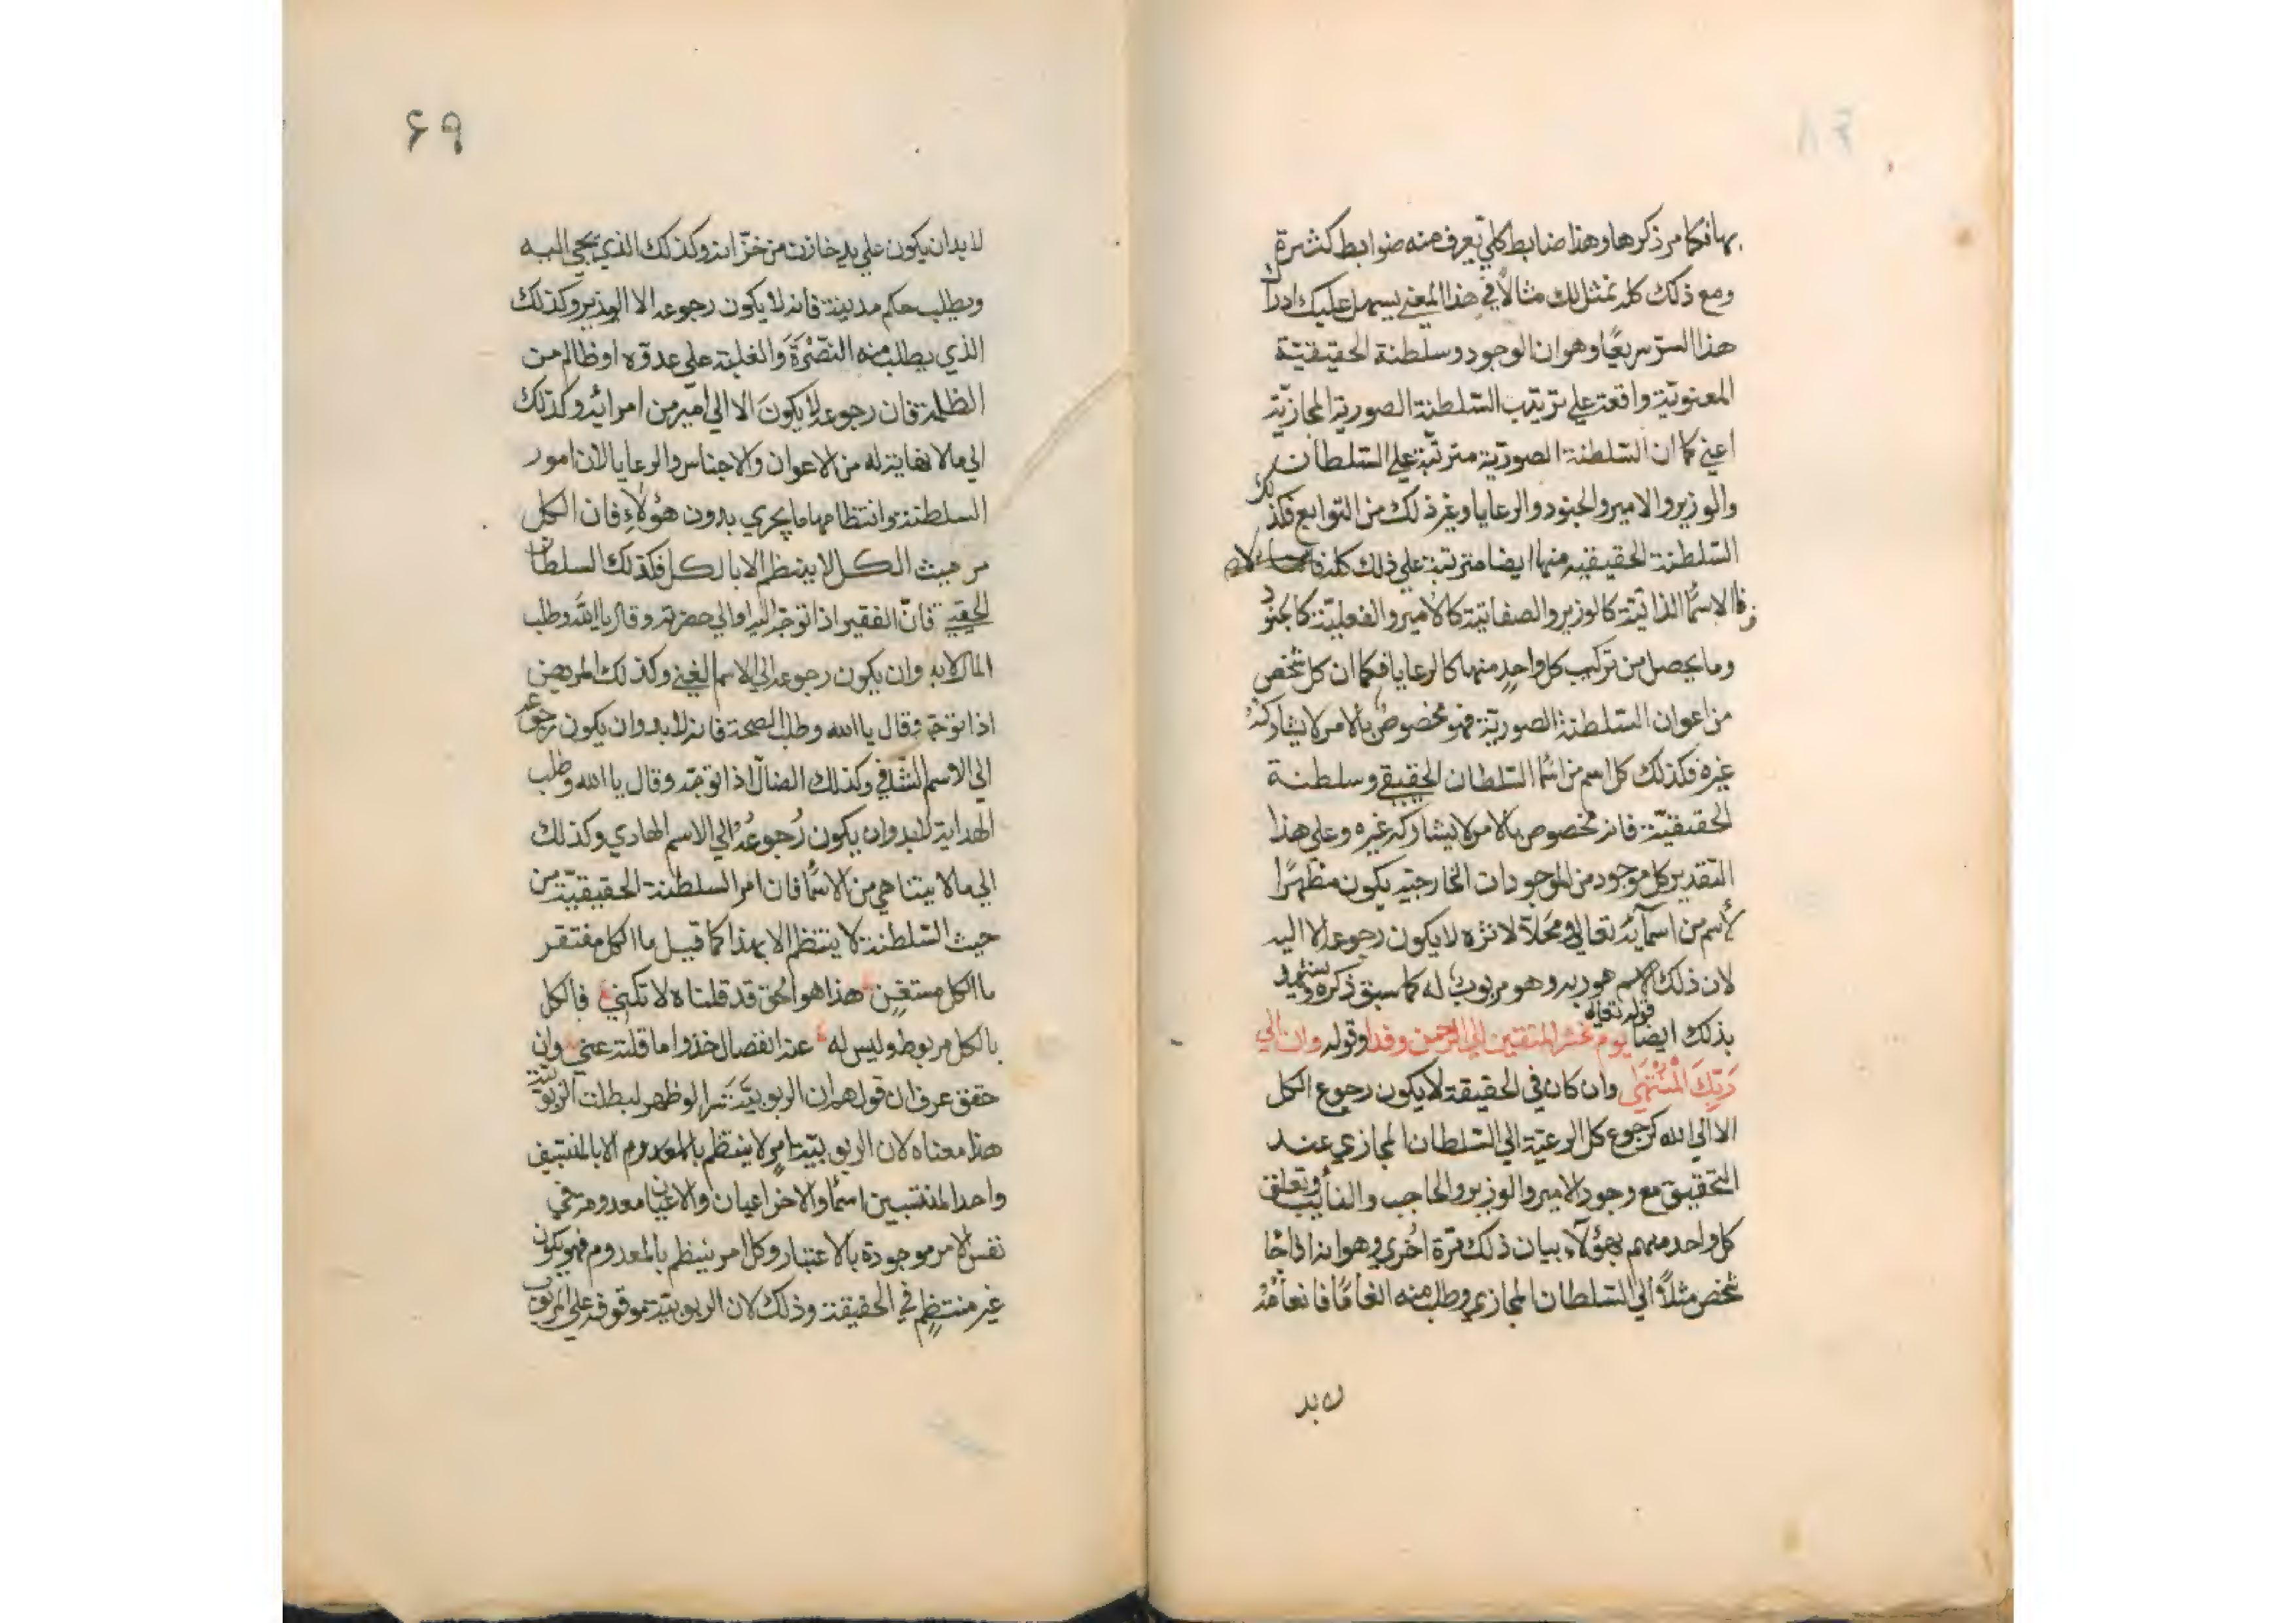 بها فكما مر ذكرها وهذا ضابط كلي تعرف منه ضوابط كثيرة
ومع ذلك كله نمثل لك مثالاً في هذا المعنى يسهل عليك ادراك
هذا السرّ سريعًا وهو ان الوجود وسلطنة الحقيقيّة
المعنويّة واقعة علي ترتيب السّلطنة الصورية المجازيّة
اعني كما ان السّلطنة الصوريّة مترتّبة علي السّلطان
والوزير والامير والجنود والرعايا وغير ذلك من التوابع فكذلك
السّلطنة الحقيقيه منها ايضا مترتبة علي ذلك كله
فالاسمآ الذاتيّة كالوزير والصفاتيّة كالامير والفعليّة كالجنود
وما يحصل من تركيب كل واحدٍ منها كالرعايا فكما ان كل شخص
من اعوان السّلطنة الصوريّة فهو مخصوصٌ بالامر لا يشاركه
غيره فكذلك كل اسم من اسمآ السّلطان الحقيقي وسلطنة
الحقيقيّة فانه مخصوص بالامر لا يشاركه غيره وعلي هذا
التقدير كل موجود من الموجودات الخارجيّة يكون مظهرًا
لأسم من اسمآئه تعالي ومحلاّ لاثره لا يكون رجوعه الا اليه
لان ذلك الاسم هو ربه وهو مربوبٌ له كما سبق ذكره ويشهد
بذلك ايضا قوله تعالي يوم نحشر المتقين الي الرحمن وفدا وقوله وان الي
رَبِّكَ الْمُنْتَهَى وان كان في الحقيقة لا يكون رجوع الكل
الا الي الله كرجوع كل الرعيّة الي السّلطان المجازي عند
التحقيق مع وجود الامير والوزير والحاجب والنأيب وتعلق
كل واحد منهم بهؤلآء بيان ذلك مرّة اُخري وهو انه اذا جآ
شخص مثلاً الي السّلطان المجازي وطلب منه انعامًا فانعامُهُ
لا بد
۶۹
لا بد ان يكون علي يد خازن من خزّانه وكذلك الذي يجي اليه
ويطلب حكم مدينة فانه لا يكون رجوعه الا الي الوزير وكذلك
الذي يطلب منه النصْرَةَ والغلبة علي عدوّه او ظالم من
الظلمة فان رجوعه لا يكونَ الا الي اميرٍ من امرائه وكذلك
الي ما لا نهاية له من الاعوان والاجناس والرعايا لان امور
السلطنة وانتظامها ما يجري بدون هؤلاءِ فان الكل
من حيث الكل لا ينتظم الا بالكل فكذلك السلطان
الحقيقي فانّ الفقير اذا توجّه اليه او الي حضرته وقال يا الله وطلب
المال لا بد وان يكون رجوعه الي الاسم الغني وكذلك المريض
اذا توجّه وقال يا الله وطلب الصحة فانه لا بد وان يكون رجوعه
الي الاسم الشّافي وكذلك الضالّ اذا توجّه وقال يا الله وطلب
الهداية لا بد وان يكون رُجوعُهُ الي الاسم الهادي وكذلك
الي ما لا يتناهي من الاسمآ فان امر السلطنة الحقيقيّة من
حيث السّلطنة لا ينتظم الا بهذا كما قيل ما الكل مفتقر
ما الكل مستغنٍ هذا هو الحق قد قلناه لا تكني فالكل
بالكل مربوط وليس له عنه انفصال خذوا ما قلته عني وان
حقق عرف ان قولهم ان الربوبيّة سرا لو ظهر لبطلت الربوبيّة
هذا معناه لان الربوبيّة امرٍ لا ينتظم بالمعدوم الا بالمنتسبين
واحد المنتسبين اسمآ والاخر اعيان والاعيان معدومة في
نفس الامر موجودة بالاعتبار وكل امر ينتظم بالمعدوم فهو يكون
غير منتظمٍ في الحقيقة وذلك لان الربوبيّة موقوفه علي المربوب